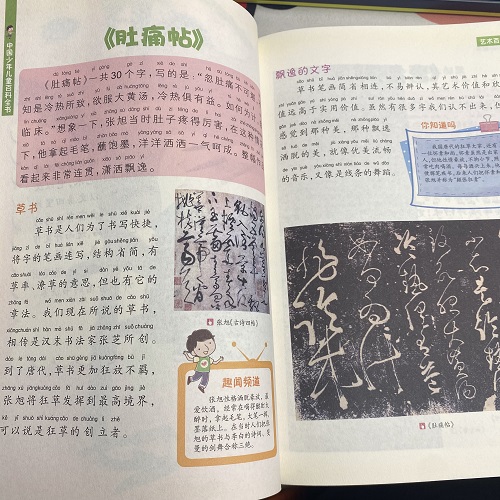 中国少年儿童百科全书
《肚痛帖》
《肚痛帖》一共30个字，写的是：“忽肚痛不可堪，
知是冷热所致，欲服大黄汤，冷热俱有益。如何为
临床。”想象一下，张旭当时肚子疼得厉害，在这种情
下，他拿起毛笔，蘸饱墨，洋洋洒洒一气呵成。整幅
看起来非常连贯，潇洒飘逸。
草书
草书是人们为了书写快捷，
将字的笔画连写，结构省简，有
草率、潦草的意思，但也有它的
章法。我们现在所说的草书，
相传是汉末书法家张芝所创。
到了唐代，草书更加狂放不羁，
张旭将狂草发挥到最高境界，
可以说是狂草的创立者。
张旭《古诗四帖》
趣闻频道
张旭性格洒脱豪放，最
爱饮酒，经常在喝得酩酊大
醉时，拿起毛笔，大笔一挥，
墨落纸上。在当时人们把张
旭的草书与李白的诗词、裴
旻的剑舞合称三绝。
艺术百
飘逸的文字
草书笔画简省相连，不易辨认，其艺术价值和欣
值远高于实用价值。虽然有很多字我们认不出来，
感觉到那种美，那种飘逸
洒脱的美，就像优美流畅
的音乐，又像是线条的舞蹈。
你知道吗
《肚痛帖》